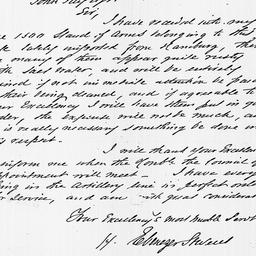 Sir,
I have received into my
1500 Stand of Arms belonging to the
lately imported from Hamburg, the
many of them appear quite rusty
with Salt Water, and will be entirely
if not immediate attention be paid
their being cleaned, and if agreeable to
Excellency I will have them put in good
the expence will not be much, and
is really necessary something be done in
respect.
I will thank your Excellency
inform me when the Honble the Council of
appointment will meet — I have every
in the Artillery line in perfect order
service, and am with great considerat
Your Excellency's most humble Servt
Ebenezer Stevens